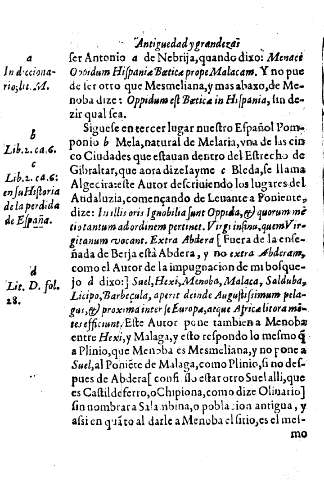 Antiguedad y grandezas
a
In dicciona-
rio; lit. M.
ser Antonio a de Nebrija, quando dixo: Menace
Oppidum Hispaniæ Bæticæ prope Malacam. Y no pue
de ser otro que Mesmeliana, y mas abaxo, de Me-
noba dize: Oppidum est Bætica in Hispania, sin de-
zir qual sea.
b
Lib. 2. ca. 6.
c
Lib. 2. ca. 6:
en su Historia
de la perdida
de España.
Siguese en tercer lugar nuestro Español Pom-
ponio b Mela, natural de Melaria, vna de las cin
co Ciudades que estauan dentro del Estrecho de
Gibraltar, que aora dize Iayme c Bleda, se llama
Algecira: este Autor descriuiendo los lugares del
Andaluzia, començando de Leuante a Poniente,
dize: In illis oris Ignobilia sunt Oppida, & quorum mẽ
tio tantum ad ordinem pertinet. Virgi in sinu, quem Vir-
gitanum vocant. Extra Abdera [ Fuera de la ense-
ñada de Berja està Abdera, y no extra Abderam,
como el Autor de la impugnacion de mi bosque-
d
Lit. D. fol.
28.
jo d dixo: ] Suel, Hexi, Menoba, Malaca, Salduba,
Licipo, Barbecula, aperit deinde Augustissimum pela-
gus, & proxima inter se Europæ, atque Africæ litora mõ-
tes efficiunt. Este Autor pone tambien a Menoba
entre Hexi, y Malaga, y esto respondo lo mesmo q̃
a Plinio, que Menoba es Mesmeliana, y no pone a
Suel, al Poniẽte de Malaga, como Plinio, sino des-
pues de Abdera [ confissado estar otro Suel alli, que
es Castildeferro, o Chipiona, como dize Oliuario]
sin nombrar a Salambina, o poblacion antigua, y
assi en quãto al darle a Menoba el sitio, es el mes-
mo